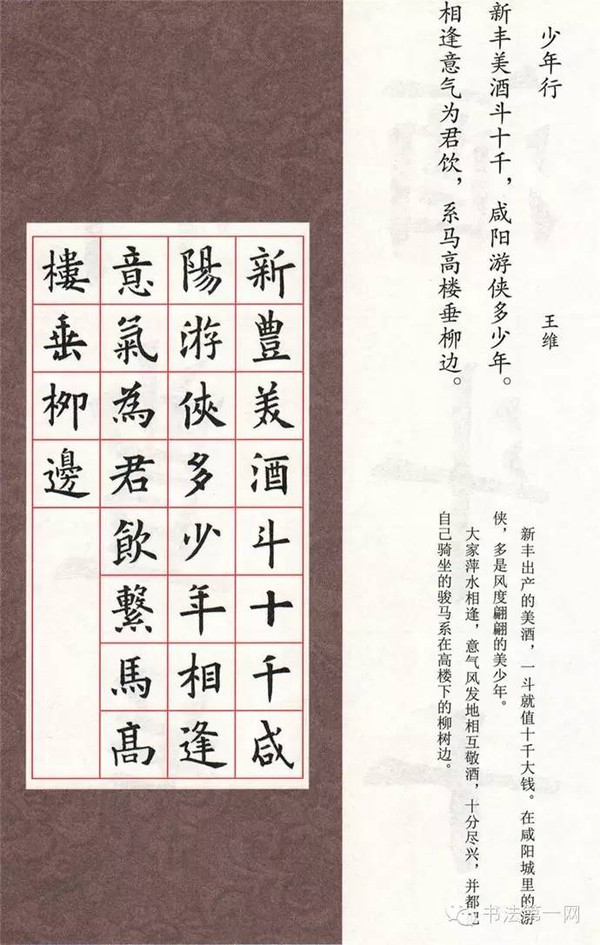 少年行
王维
新丰美酒斗十千，咸阳游侠多少年。
相逢意气为君饮，系马高楼垂柳边。
新丰出产的美酒，一斗就值十千大钱。在咸阳城里的游
侠，多是风度翩翩的美少年。
大家萍水相逢，意气风发地相互敬酒，十分尽兴，并都把
自己骑坐的骏马系在高楼下的柳树边。
新豊美酒斗十千咸
陽游俠多少年相逢
意氣為君飲繫馬高
樓垂柳邊
书法第一网